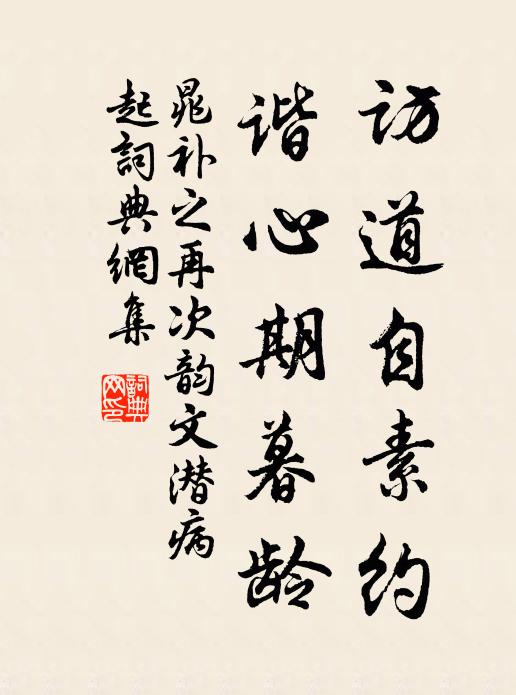 访道自素约
谐心期暮龄
晁补之再次韵文潜病
起詞典網集
詞典網印